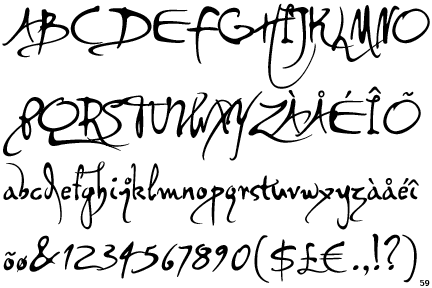 ABCDEFGHIJKLMNO
PQRSTUVWXYZÀÅÉÎÕ
abcdefghijklmnopqrstuvwxyzàåéî
õø&1234567890($£€.,!?)
59